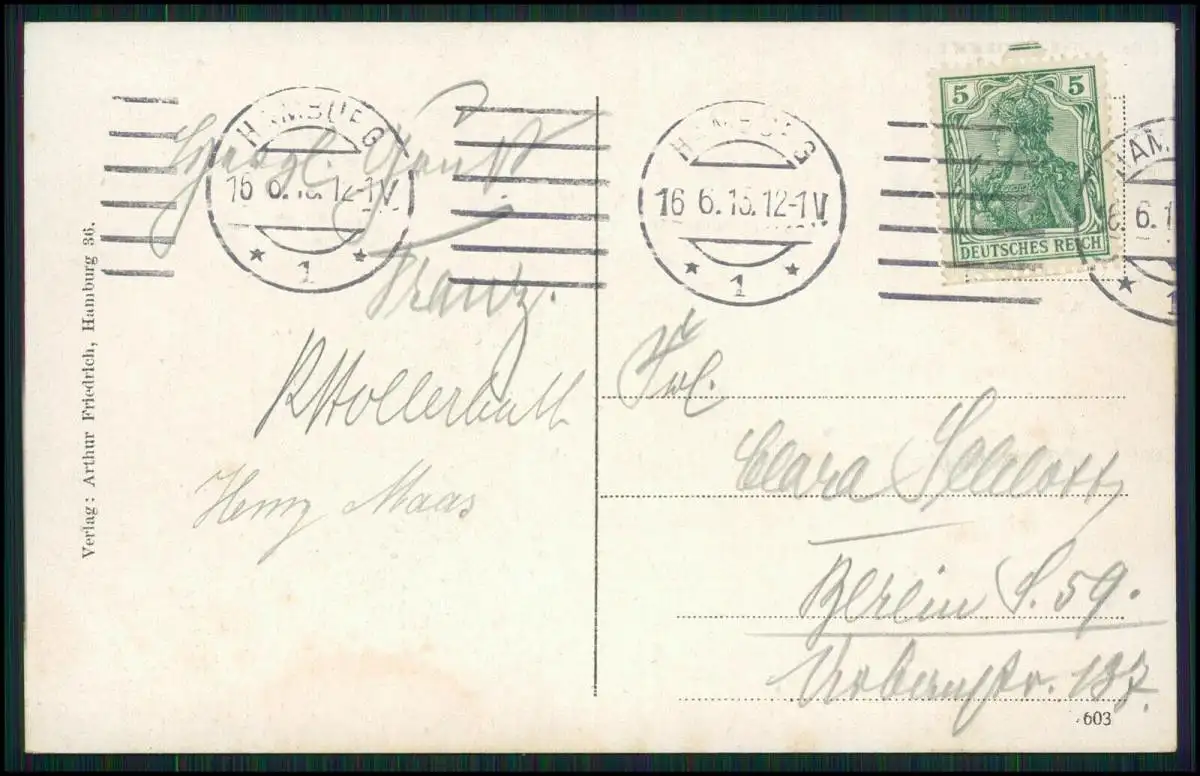 HAMBURG
16 6.13.12-1V.
* 1 *
HAMBURG
16 6.13.12-1V.
* 1 *
HAM
6.1
* 1
5 5
DEUTSCHES REICH
Herzl. Gruß
Franz.
Henry Maas
Frl.
Clara Schlott
Berlin S. 59.
Urbanstr. 137.
Verlag: Arthur Friedrich, Hamburg 36.
603